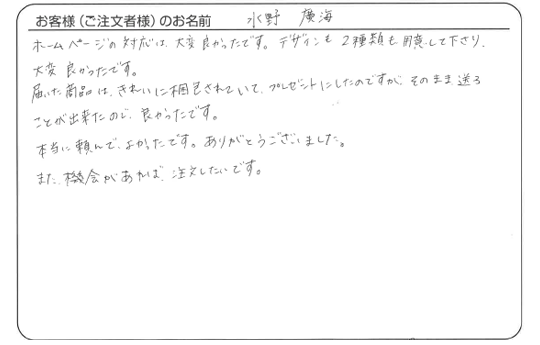 お客様(ご注文者様)のお名前 水野 廣海
ホームページの対応は、大変良かったです。デザインも2種類も用意して下さり、
大変良かったです。
届いた商品は、きれいに梱包されていて、プレゼントにしたのですが、そのまま送る
ことが出来たので、良かったです。
本当に頼んで、よかったです。ありがとうございました。
また、機会があれば、注文したいです。